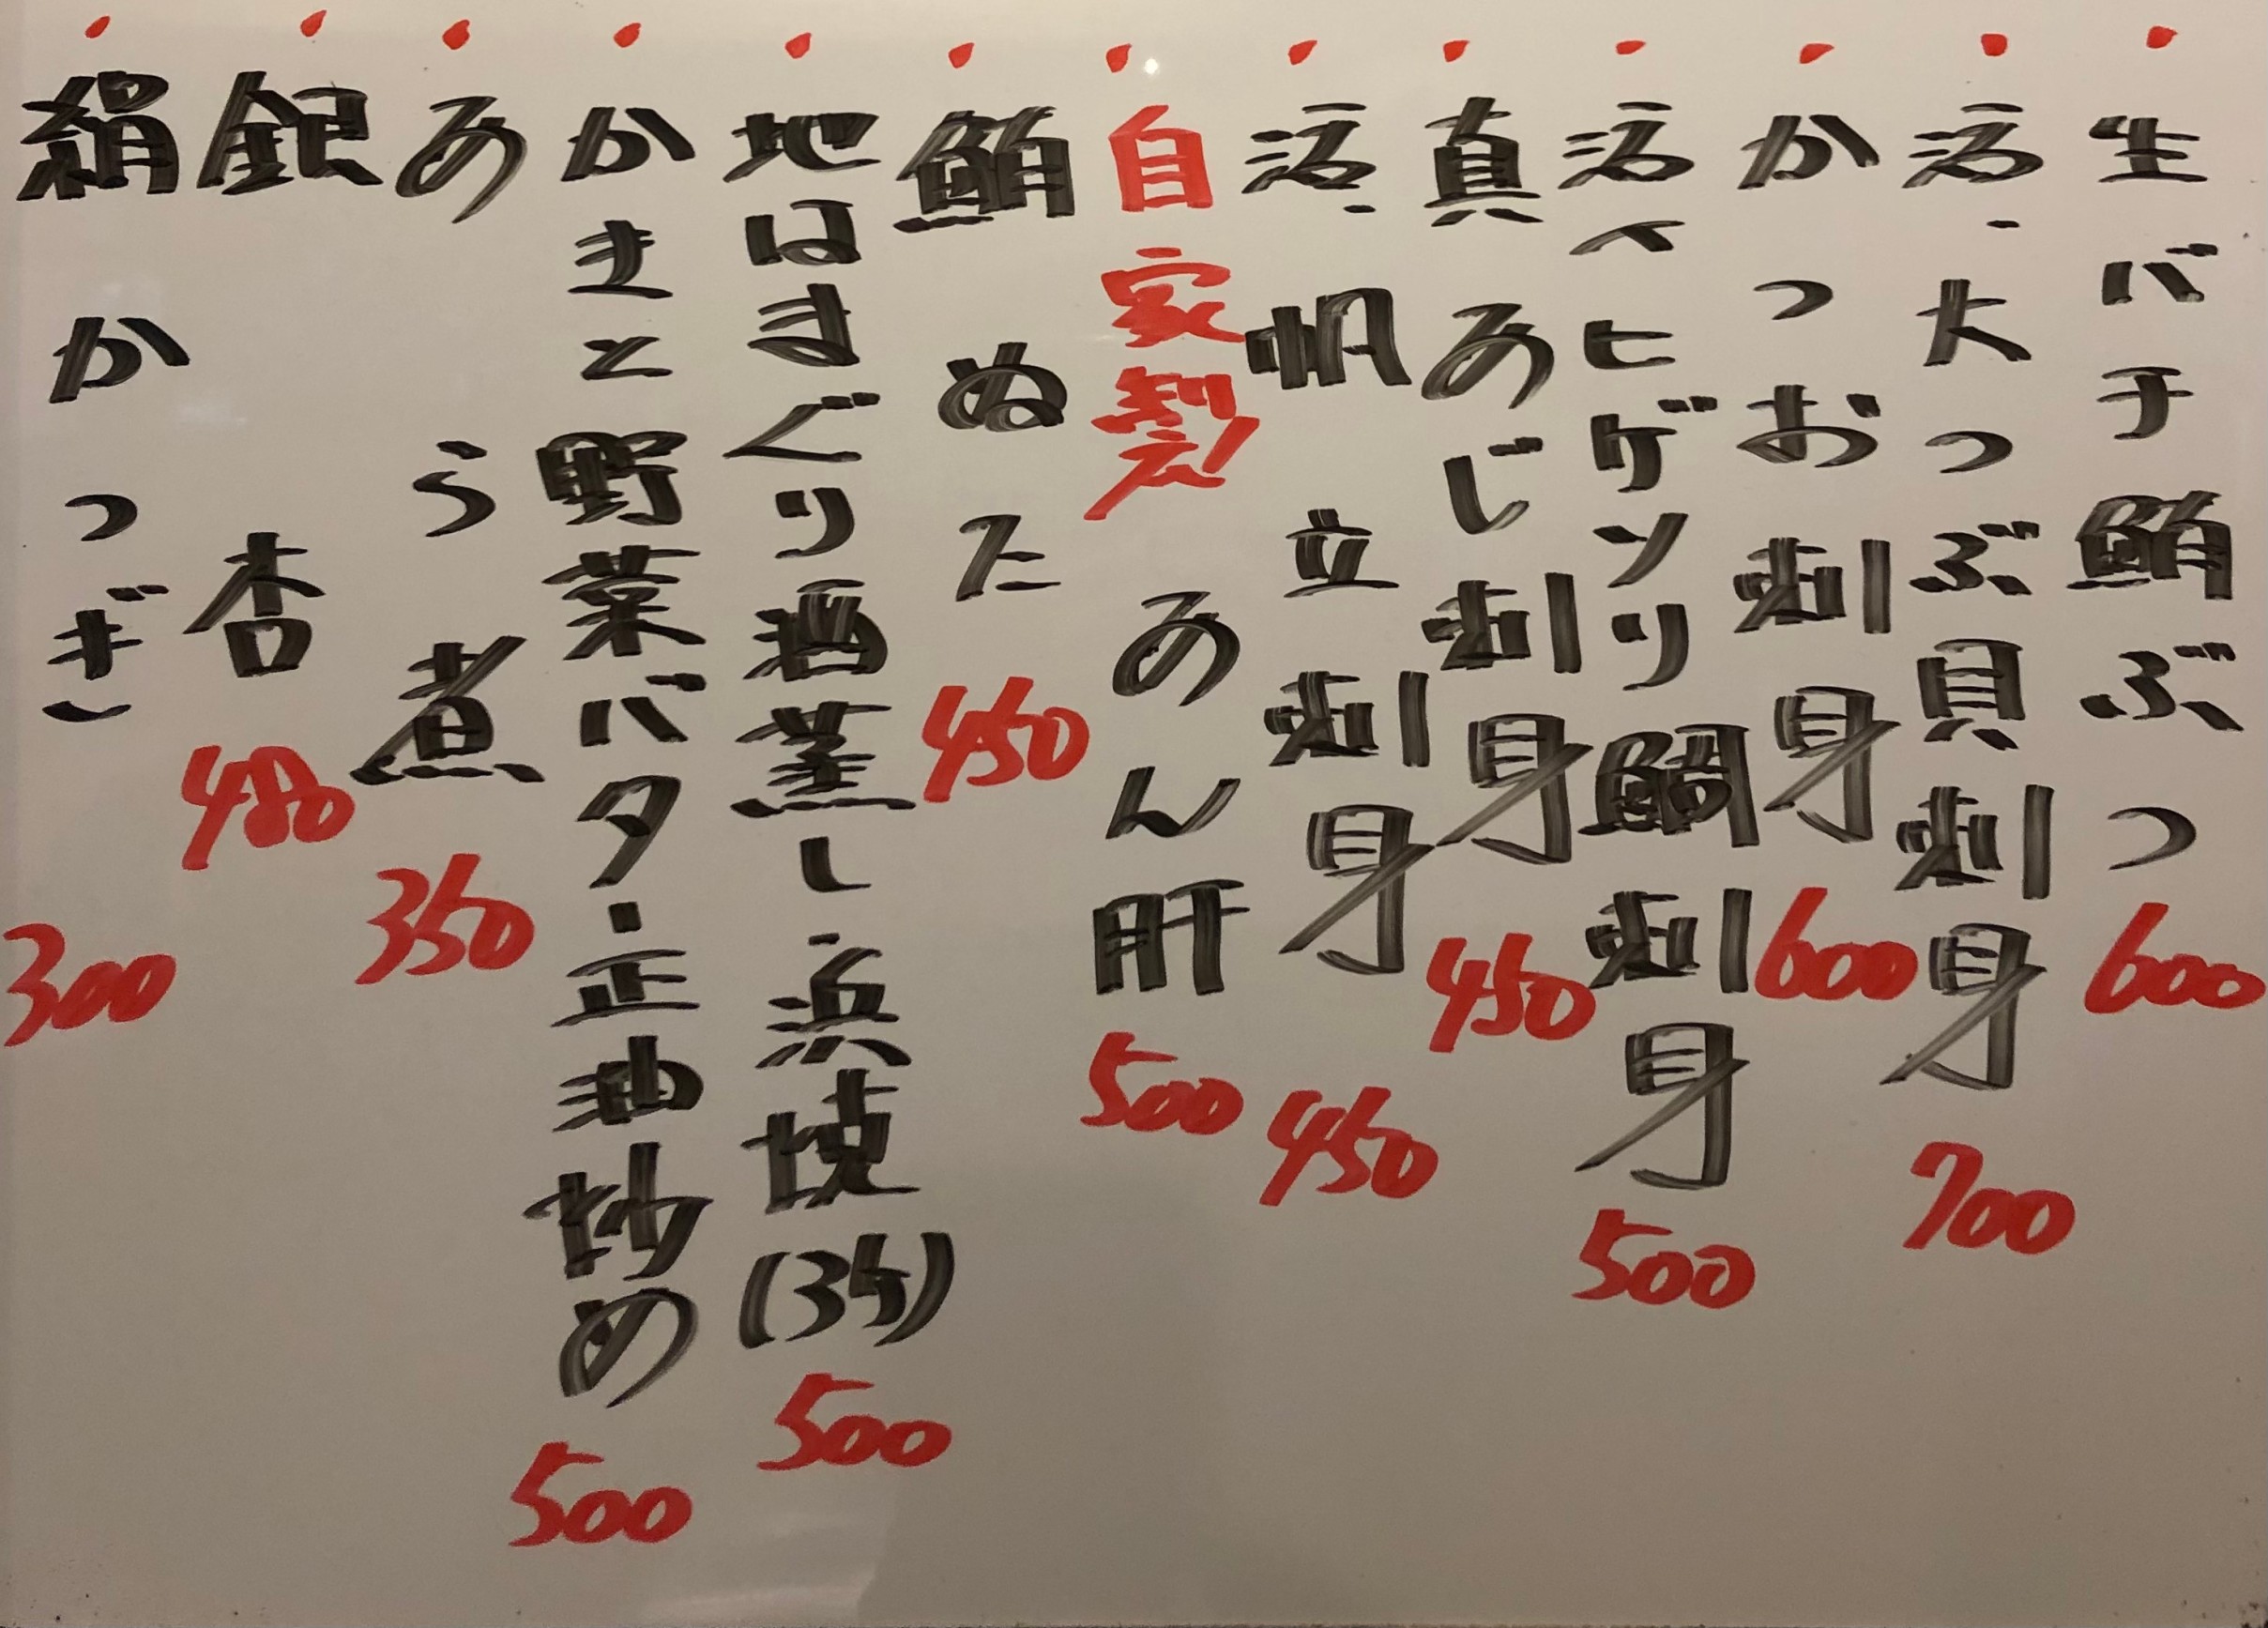 ・生バチ鮪ぶつ 600
・活・大つぶ貝刺身 700
・かつお刺身 600
・活〆ヒゲソリ鯛刺身 500
・真あじ刺身 450
・活・帆立刺身 450
・自家製あん肝 500
・鮪ぬた 450
・地はまぐり酒蒸し・浜焼(3ケ) 500
・かきと野菜バター正油炒め 500
・あら煮 350
・銀杏 480
・絹かつぎ 300